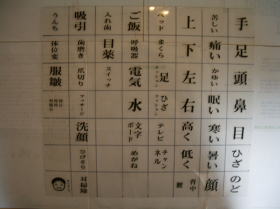 手 足 頭 鼻 目 ひざ のど
苦しい 痛い かゆい 眠い 寒い 暑い 顔
上 下 左 右 高く 低く 背中 腰
ベッド まくら 足 ひざ テレビ チャンネル
ご飯 呼吸器 電気 水 文字ボード めがね
入れ歯 目薬 スイッチ
吸引 歯磨き 爪切り マッサージ 洗顔 ひげそり 耳掃除
うんち 体位変 服皺